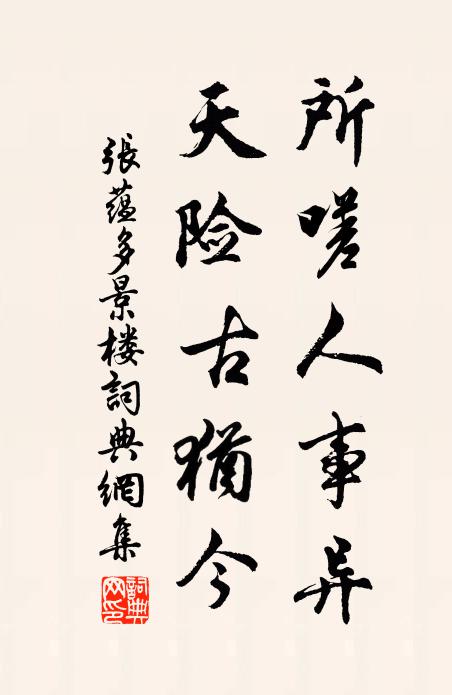 所嗟人事异
天险古犹今
張蘊多景楼詞典網集
詞典网印